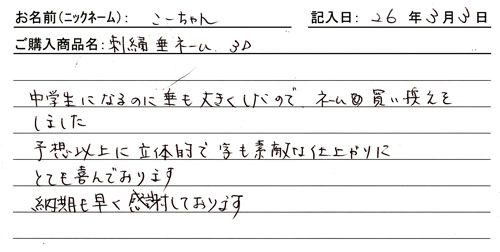 お名前(ニックネーム): こーちゃん 記入日: 26 年 3月 3日
ご購入商品名: 刺繍垂ネーム 3D
中学生になるのに垂も大きくしたので、ネームの買い換えを
しました
予想以上に立体的で字も素敵な仕上がりに
とても喜んでおります
納期も早く感謝しております